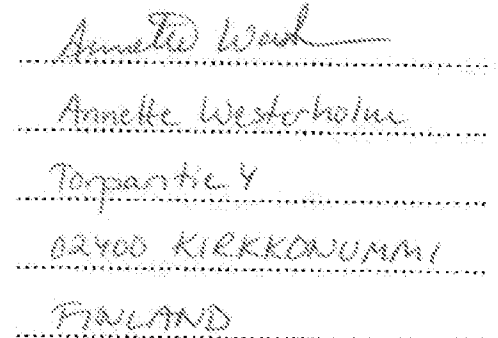 Annette
Annette Westerholm
Torpantie 4
02400 KIRKKONUMMI
FINLAND